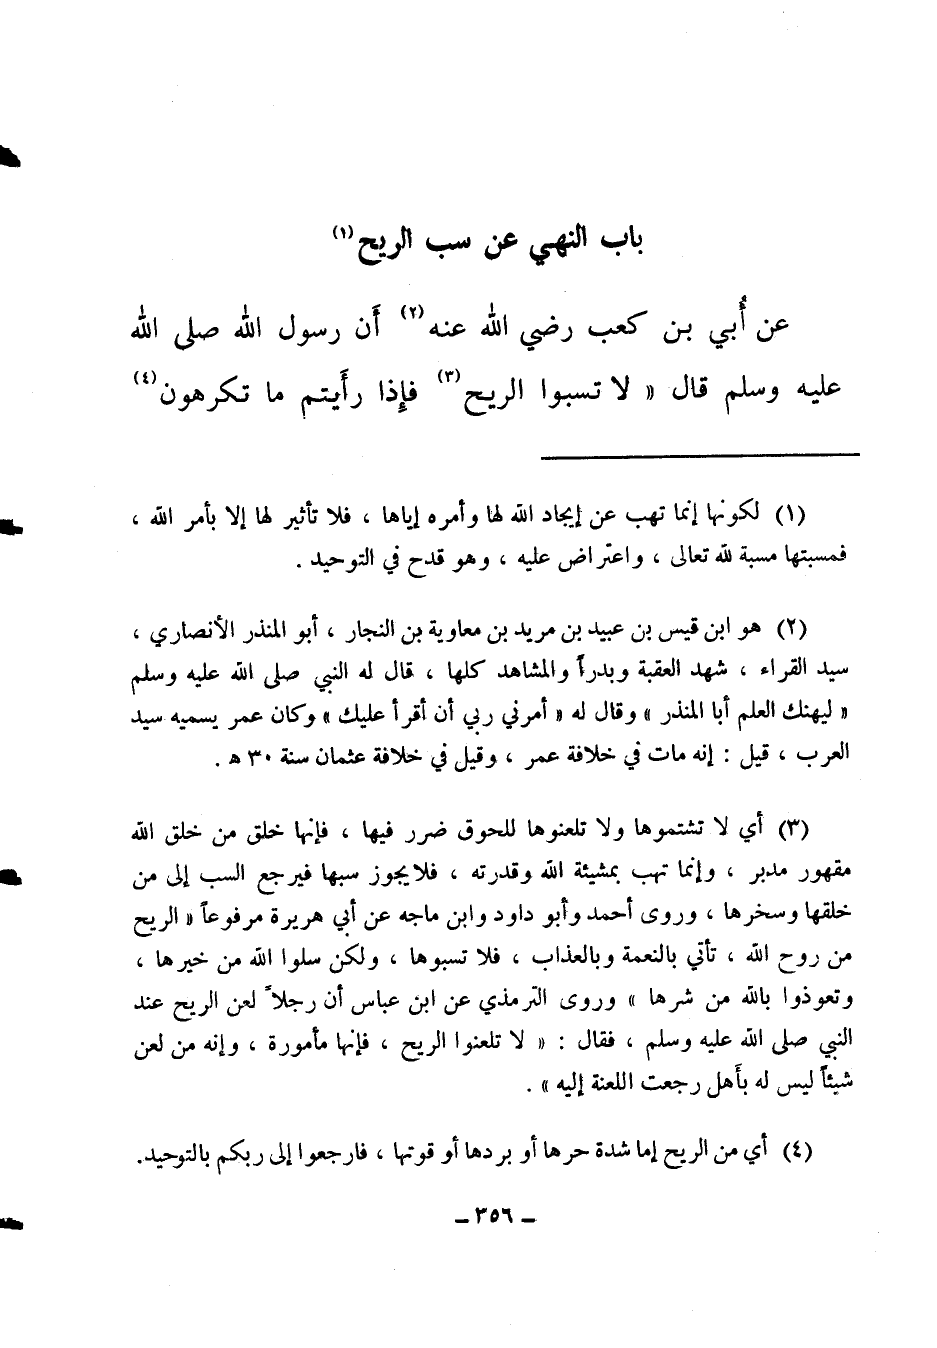 باب النهي عن سب الريح(١)
عن أُبي بن كعب رضي الله عنه(٢) أَن رسول الله صلى الله
عليه وسلم قال « لا تسبوا الريح(٣) فإِذا رأَيتم ما تكرهون(٤)
(١) لكونها إنما تهب عن إيجاد الله لها وأمره إياها ، فلا تأثير لها إلا بأمر الله ،
فمسبتها مسبة لله تعالى ، واعتراض عليه ، وهو قدح في التوحيد .
(٢) هو ابن قيس بن عبيد بن مريد بن معاوية بن النجار ، أبو المنذر الأنصاري ،
سيد القراء ، شهد العقبة وبدراً والمشاهد كلها ، قال له النبي صلى الله عليه وسلم
« ليهنك العلم أبا المنذر » وقال له « أمرني ربي أن أقرأ عليك » وكان عمر يسميه سيد
العرب ، قيل : إنه مات في خلافة عمر ، وقيل في خلافة عثمان سنة ٣٠ ه .
(٣) أي لا تشتموها ولا تلعنوها للحوق ضرر فيها ، فإنها خلق من خلق الله
مقهور مدبر ، وإنما تهب بمشيئة الله وقدرته ، فلا يجوز سبها فيرجع السب إلى من
خلقها وسخرها ، وروى أحمد وأبو داود وابن ماجه عن أبي هريرة مرفوعاً « الريح
من روح الله ، تأتي بالنعمة وبالعذاب ، فلا تسبوها ، ولكن سلوا الله من خيرها ،
وتعوذوا بالله من شرها » وروى الترمذي عن ابن عباس أن رجلاً لعن الريح عند
النبي صلى الله عليه وسلم ، فقال : « لا تلعنوا الريح ، فإنها مأمورة ، وإنه من لعن
شيئاً ليس له بأهل رجعت اللعنة إليه » .
(٤) أي من الريح إما شدة حرها أو بردها أو قوتها ، فارجعوا إلى ربكم بالتوحيد.
ـ ٣٥٦ ـ